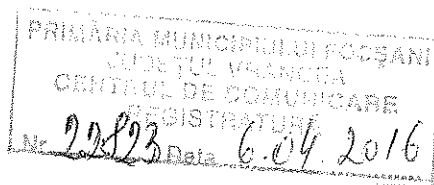 PRIMĂRIA MUNICIPIULUI FOCȘANI
JUDEȚUL VRANCEA
CENTRUL DE COMUNICARE
REGISTRATURĂ
Nr. 22823 Data 6.04.2016